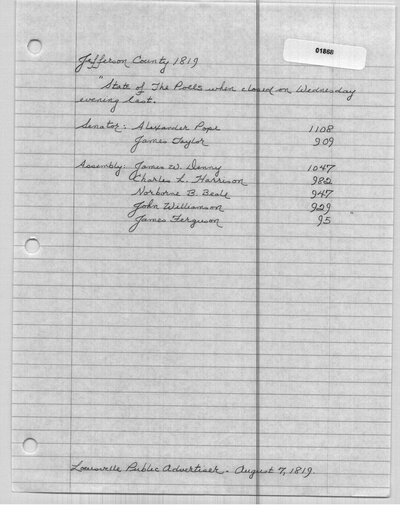 01868
Jefferson County 1819
"State of The Polls when closed on Wednesday
evening last.
Senator: Alexander Pope 1108
James Taylor 909
Assembly: James W. Denny 1047
Charles L. Harrison 982
Norborne B. Beale 947
John Williamson 929
James Ferguson 95 "
Louisville Public Advertiser. August 7, 1819.